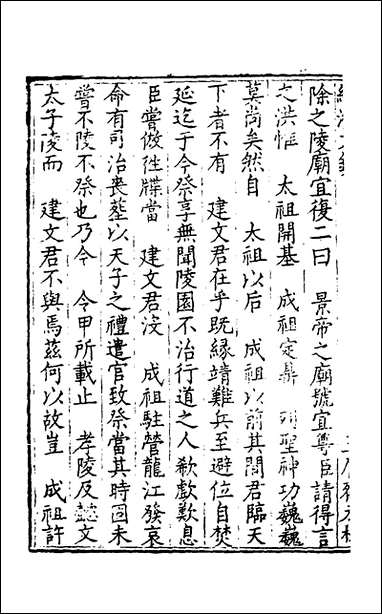 除之陵廟宜復二曰　景帝之廟號宜尊臣請得言
之洪惟　太祖開基　成祖定鼎　列聖神功巍巍
莫尚矣然自　太祖以后　成祖以前其間君臨天
下者不有　建文君在乎既緣靖難兵至避位自焚
延迄于今祭享無聞陵園不治行道之人欷歔歎息
臣嘗倣徃牒當　建文君没　成祖駐營龍江發哀
命有司治喪葬以天子之禮遣官致祭當其時固未
嘗不陵不祭也乃今　令甲所載止　孝陵及懿文
太子陵而　建文君不與焉茲何以故豈　成祖許